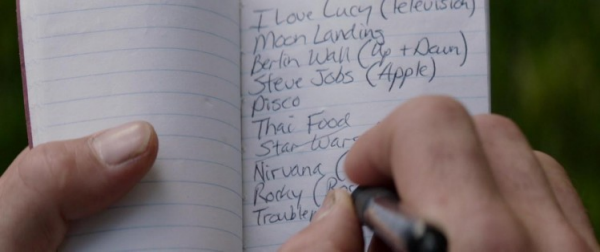 I Love Lucy (Television)
Moon Landing
Berlin Wall (Up + Down)
Steve Jobs (Apple)
Disco
Thai Food
Star Wars
Nirvana (
Rocky (
Trouble